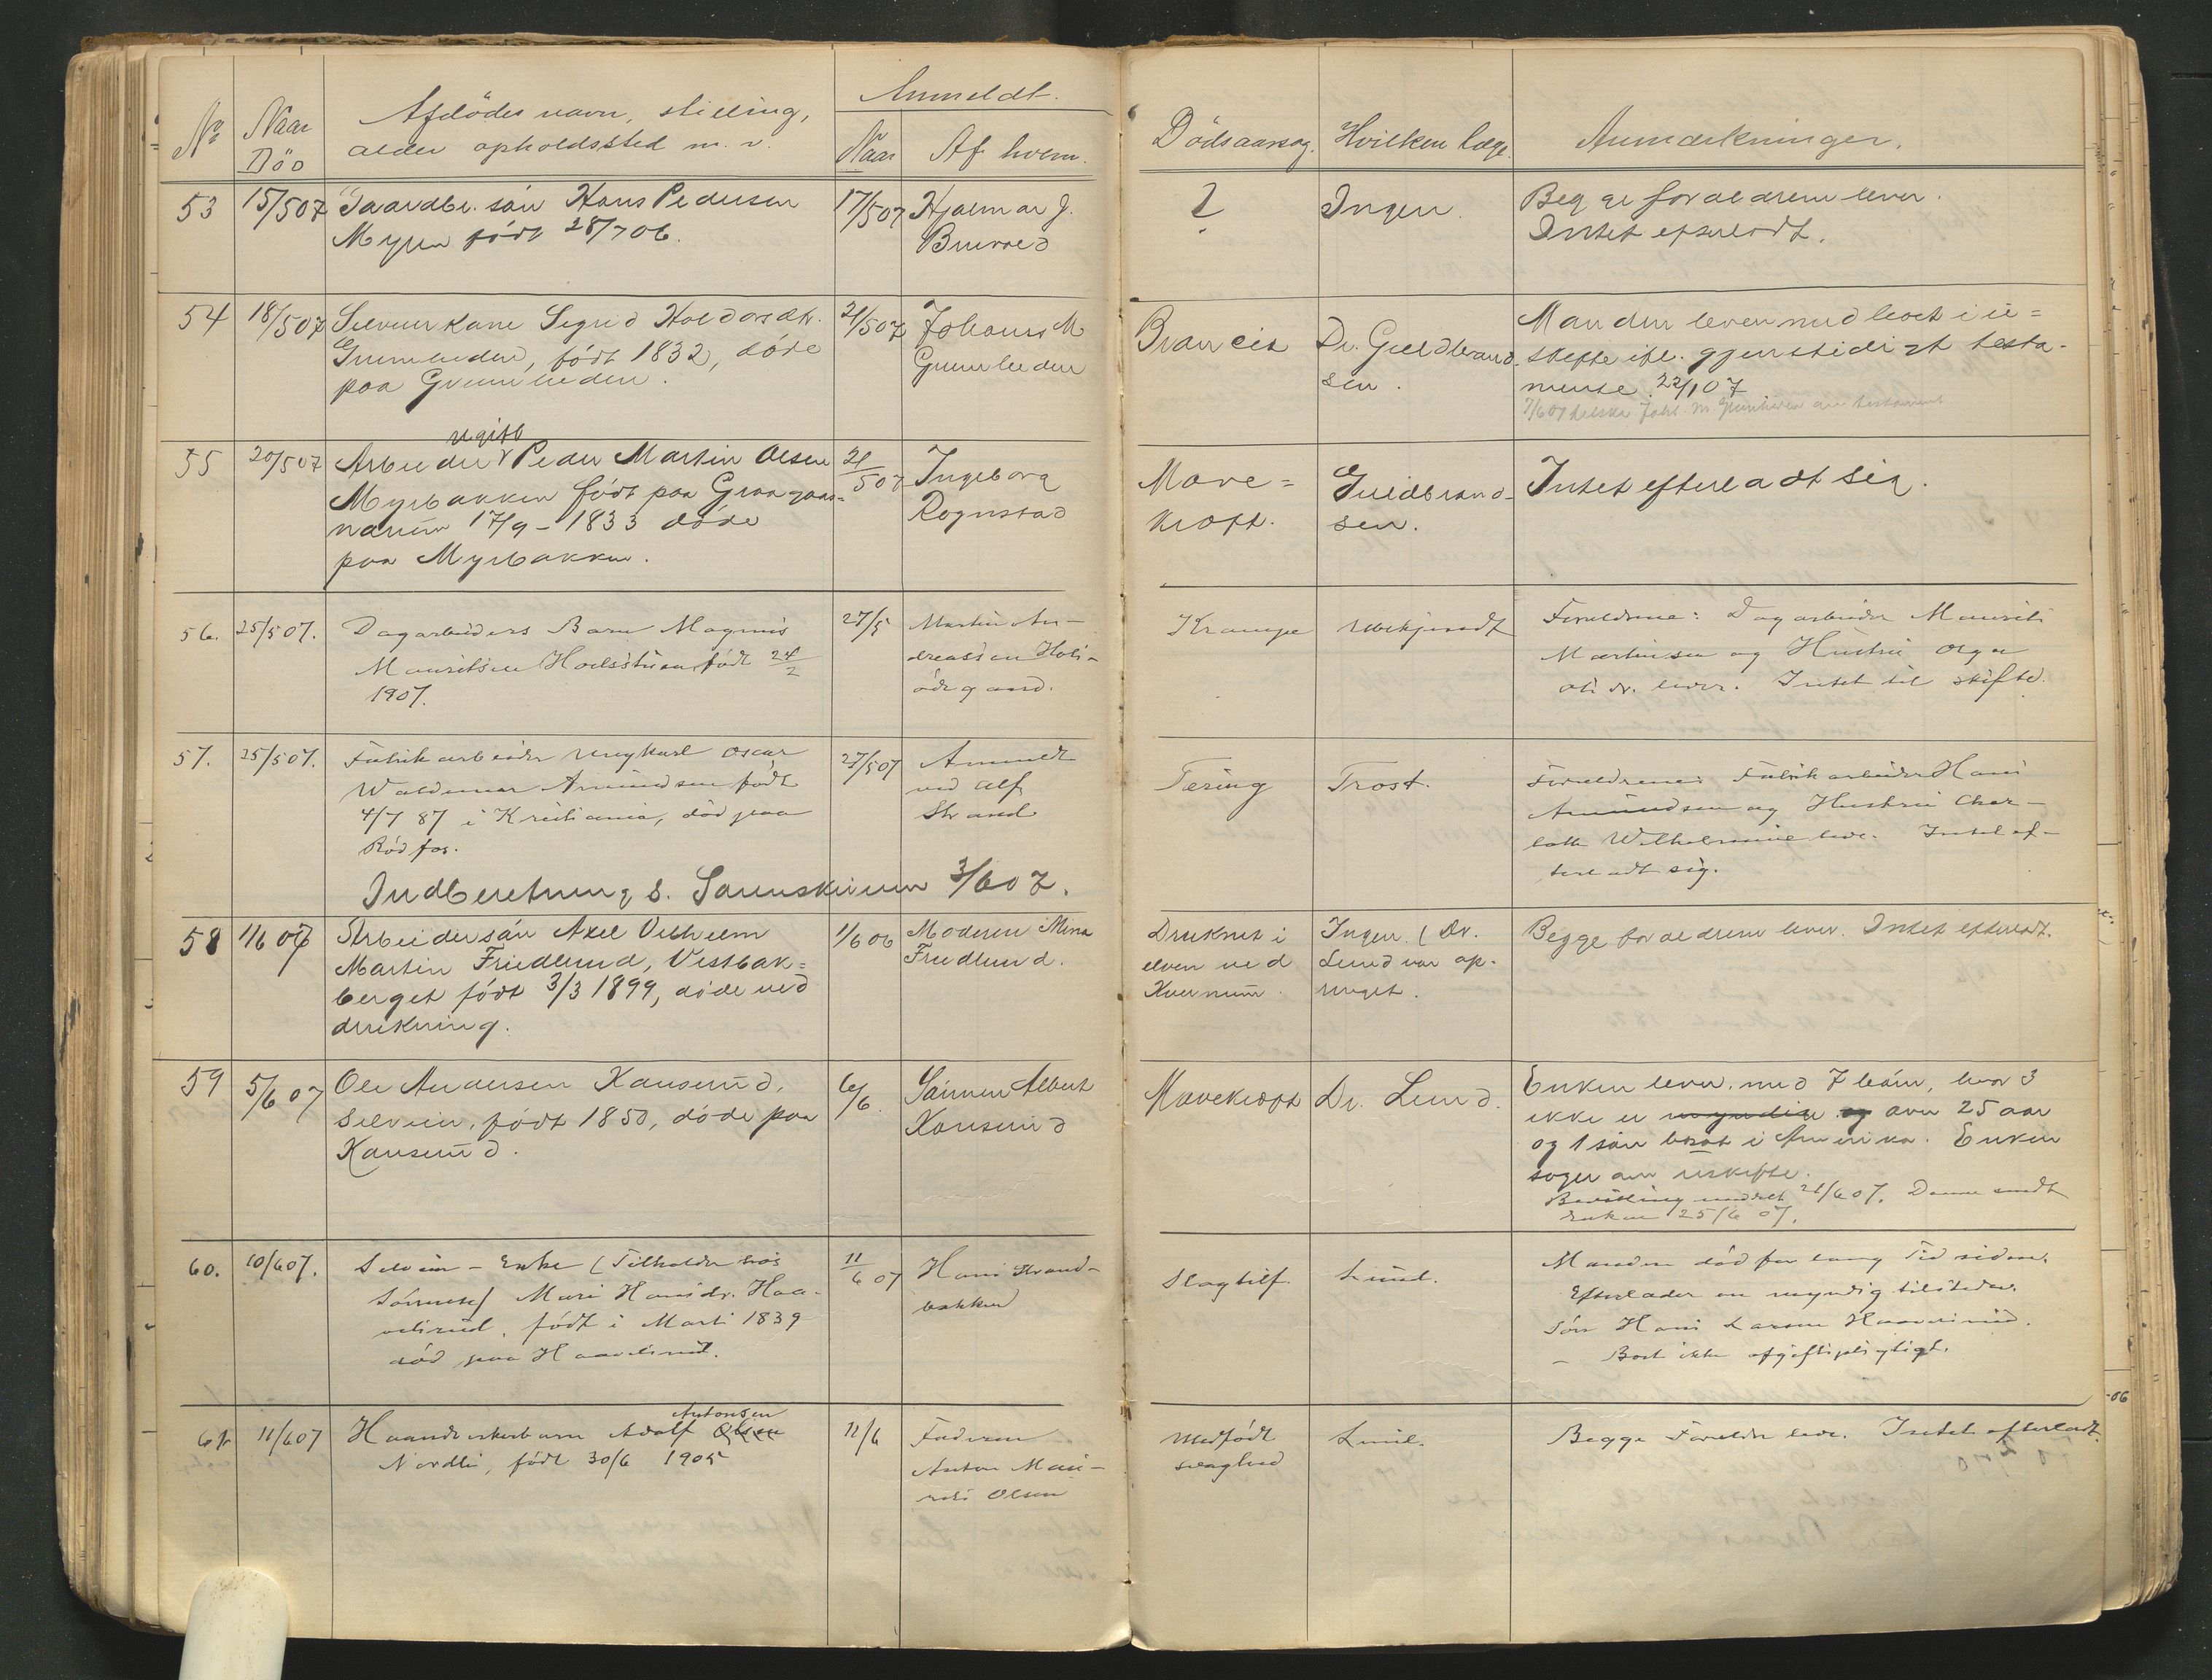 No
Naar
Död
Afdödes navn, stilling,
alder opholdssted m. v.
Anmeldt.
Naar
Af hvem.
Dödsaarsag.
Hvilken læge
Anmærkninger.
53
15/5 07
Gaardbr. sön Hans Pedersen
Myren födt 28/7 06.
17/5 07
Hjalmar J.
?
Ingen.
Begge foraeldrene lever.
Intet efterladt.
54
18/5 07
Selveierkone Sigrid Haldorsdtr.
födt 1832, döde
paa
21/5 07
Johannes M
Dr. Guldbrand-
sen.
Manden lever med boet i u=
skifte ifl. gjensidigt testa-
mente 22/1 07
55
20/5 07
ugift
Arbeider Peder Martin Olsen
Myrbakken födt paa
17/9 - 1833 döde
paa Myrbakken.
21/5 07
Ingeborg
Rognstad
Mave=
kræft.
Guldbrand-
sen.
Intet efterladt sig.
56.
25/5 07.
Dagarbeiders Barn Magnus
Mauritsen födt 24/2
1907.
27/5
Martin An-
dreassen
Krampe
ubekjendt
Foreldrene: Dagarbeider Maurits
Martinsen og Hustru Olga
lever. Intet til skifte.
57.
25/5 07.
Fabrikarbeider ungkarl Oscar
Waldemar Amundsen födt
4/7 87 i Kristiania, död paa
Rödfos.
27/5 07
Anmeldt
ved Alf
Strand
Tæring
Trost.
Foreldrene: Fabrikarbeider Hans
Amundsen og Hustru Char-
lotte Wilhelmine lever. Intet ef-
terladt sig.
Indberetning s. Sorenskriveren 3/6 07.
58
1/6 07
Arbeidersön Axel Vilhelm
Martin Friedlund, Vestbak=
berget födt 3/3 1899, döde ved
drukning.
1/6 06
Moderen Mina
Friedlund.
Druknet i
elven ved
Kvernum.
Ingen. (Dr.
Lund var op-
ringet.
Begge foraeldrene lever. Intet efterladt.
59
5/6 07
Ole Andersen Kausrud,
selveier, födt 1850, döde paa
Kausrud.
6/6.
Sönnen Albert
Kausrud
Mavekræft
Dr. Lund.
Enken lever med 7 börn, hvor 3
ikke er myndige og over 25 aar
og 1 sön bosat i Amerika. Enken
söger om uskifte.
Bevilling meddelt 21/6 07. Denne sendt
Enken 25/6 07.
60.
10/6 07.
Selveier-Enke (Tilholder hos
Sönnen) Mari Hansdr. Haa-
velsrud, födt i Marts 1839
död paa Haavelsrud.
11/6 07
Hans Strand-
bakken
Slagtilf.
Lund.
Manden död for lang Tid siden.
Efterlader en myndig tilstedev.
Sön Hans Larsen Haavelsrud.
- Boet ikke afgiftspligtigt.
61
11/6 07
Haandverkerbarn Adolf Olsen
Antonsen
Nordli, födt 30/6 1905
12/6
Faderen
Anton Mau-
rits Olsen
Medfödt
svaghed
Lund.
Begge Foreldre lever. Intet efterladt.
-06